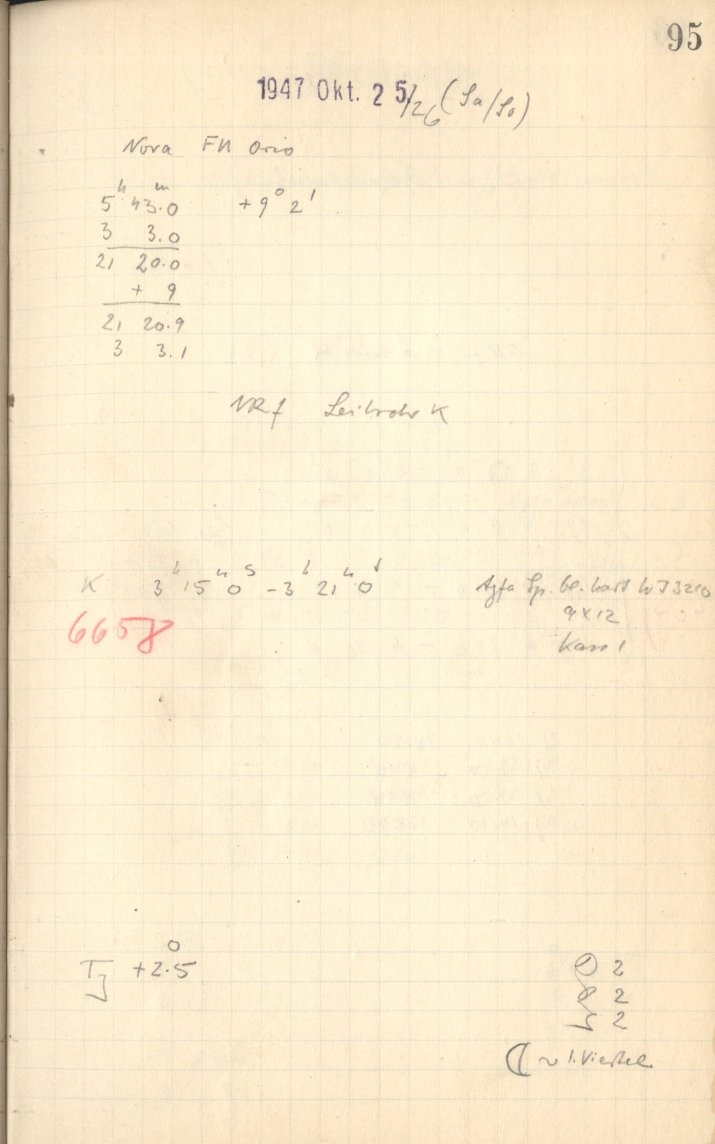 95
1947 Okt. 25/26 (Sa/So)
Nova FU Orio
5h 43.0m +9° 2'
3 3.0
21 20.0
+ 9
21 20.9
3 3.1
Leitrohr K
K 3h 15m 0s - 3h 21m 0s
Agfa Sp. bl. hart
9x12
Kass 1
6658
+2.5°
2
2
2
☾ ~ 1. Viertel